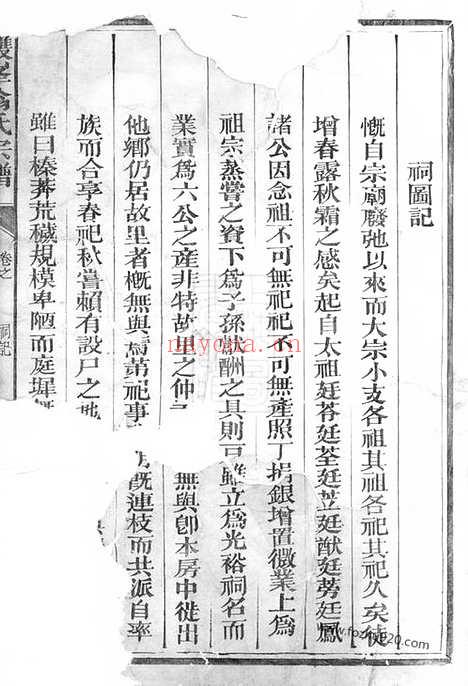 祠圖記
慨自宗廟廢弛以來而大宗小支各祖其祖各祀其祀久矣使
增春露秋霜之感矣起自太祖廷苓廷荃廷苙廷猷廷蒡廷鳳
諸公因念祖不可無祀祀不可無產照丁捐銀增置微業上爲
祖宗蒸嘗之資下爲子孫獻酬之具則豆雖立爲光裕祠名而
業實爲六公之產非特故里之仲 無與卽本房中徙出
他鄉仍居故里者概無與焉第祀事 旣連枝而共派自率
族而合享春祀秋嘗賴有設尸之地
雖曰榛莽荒穢規模卑陋而庭墀
雙峯 氏宗譜
卷之 祠記
nayona.cn
www.fozhu920.com